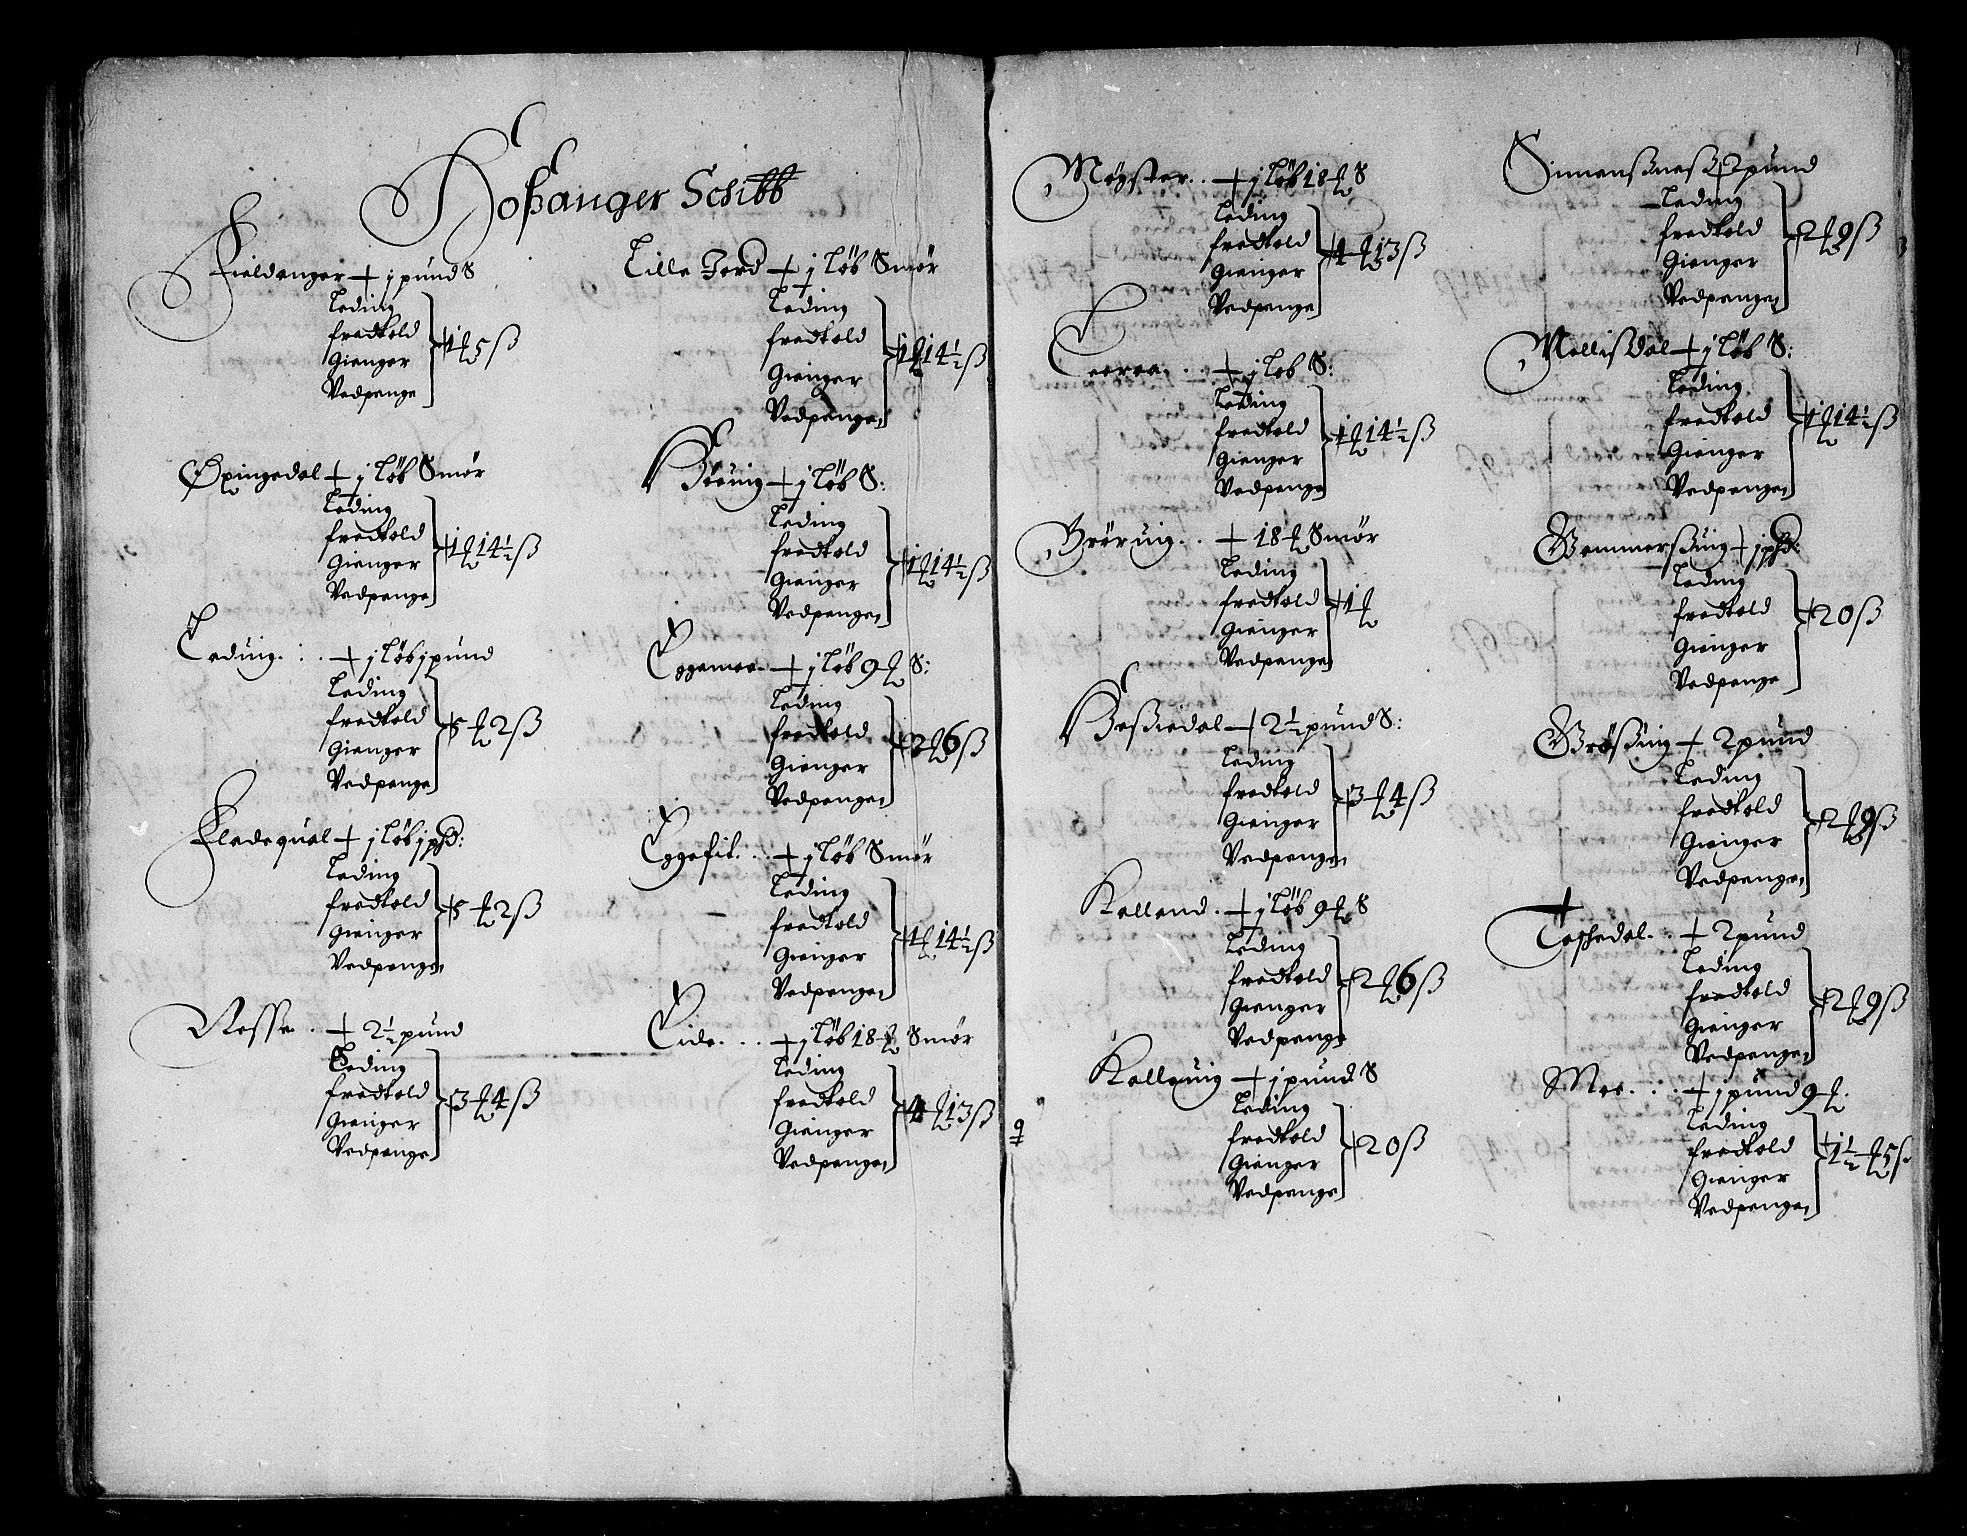 Hoßanger Schibb
Fieldanger + j pund S
Leding
fredtold
Gienger
Vedpenge
+ 1 ℔ 5 ß
Øxingedal + j løb Smør
Leding
fredtold
Gienger
Vedpenge
+ 1 ℔ 14½ ß
Leduig. : . + j løb j pund
Leding
fredtold
Gienger
Vedpenge
+ 5 ℔ 2 ß
Fladequal + j løb j phd:
Leding
fredtold
Gienger
Vedpenge
+ 5 ℔ 2 ß
Nesse. . + 2½ pund
Leding
fredtold
Gienger
Vedpenge
+ 3 ℔ 4 ß
Lille + j løb Smør
Leding
fredtold
Gienger
Vedpenge
+ 1 ℔ 14½ ß
+ j løb S:
Leding
fredtold
Gienger
Vedpenge
+ 1 ℔ 14½ ß
Eggemoe. + j løb 9 ℔ S:
Leding
fredtold
Gienger
Vedpenge
+ 2 ℔ 6 ß
Eggefit. . . + j løb Smør
Leding
fredtold
Gienger
Vedpenge
+ 1 ℔ 14½ ß
Eide. . . + j løb 18 ℔ Smør
Leding
fredtold
Gienger
Vedpenge
+ 4 ℔ 13 ß
Møgster. . + j løb 18 ℔ S
Leding
fredtold
Gienger
Vedpenge
+ 4 ℔ 13 ß
+ j løb S:
Leding
fredtold
Gienger
Vedpenge
+ 1 ℔ 14½ ß
Brøruig. . + 18 ℔ Smør
Leding
fredtold
Gienger
Vedpenge
+ 1 ℔
+ 2½ pund S:
Leding
fredtold
Gienger
Vedpenge
+ 3 ℔ 4 ß
Kalland. + j løb 9 ℔ S
Leding
fredtold
Gienger
Vedpenge
+ 2 ℔ 6 ß
Kalleuig + j pund S
Leding
fredtold
Gienger
Vedpenge
+ 20 ß
Simensßneß + 2 pund
Leding
fredtold
Gienger
Vedpenge
+ 2 ℔ 9 ß
Mellißdal + j løb S:
Leding
fredtold
Gienger
Vedpenge
+ 1 ℔ 14½ ß
+ j phd:
Leding
fredtold
Gienger
Vedpenge
+ 20 ß
+ 2 pund
Leding
fredtold
Gienger
Vedpenge
+ 2 ℔ 9 ß
Taschedal. . + 2 pund
Leding
fredtold
Gienger
Vedpenge
+ 2 ℔ 9 ß
Moe. : . + j pund 9 ℔.
Leding
fredtold
Gienger
Vedpenge
+ 1½ ℔ 5 ß